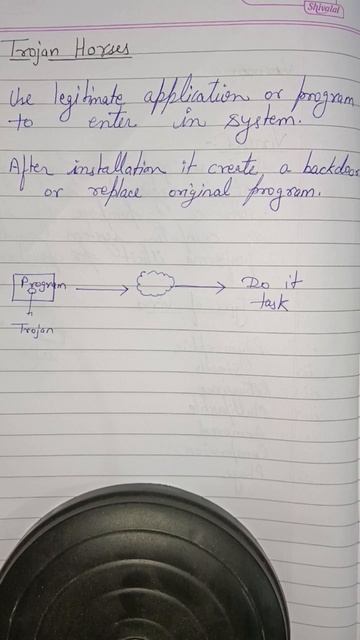 Shivalal
Trojan Horses
Use legitimate application or program
to enter in system.
After installation it create a backdoor
or replace original program.
Program
Do it
task
Trojan